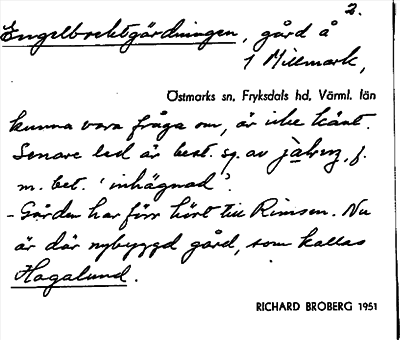 2.
Engelbrektgärdningen, gård å
1 Millmark,
Östmarks sn, Fryksdals hd, Värml. län
kunna vara fråga om, är icke känt.
Senare led är best. sg. av jäl f.
m. bet. 'inhägnad'.
- Gården har förr hört till Rimsen. Nu
är där nybyggd gård, som kallas
Hagalund.
RICHARD BROBERG 1951